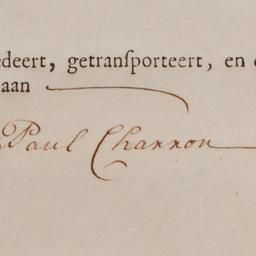 edeert, getransporteert, en
aan
Paul Channon